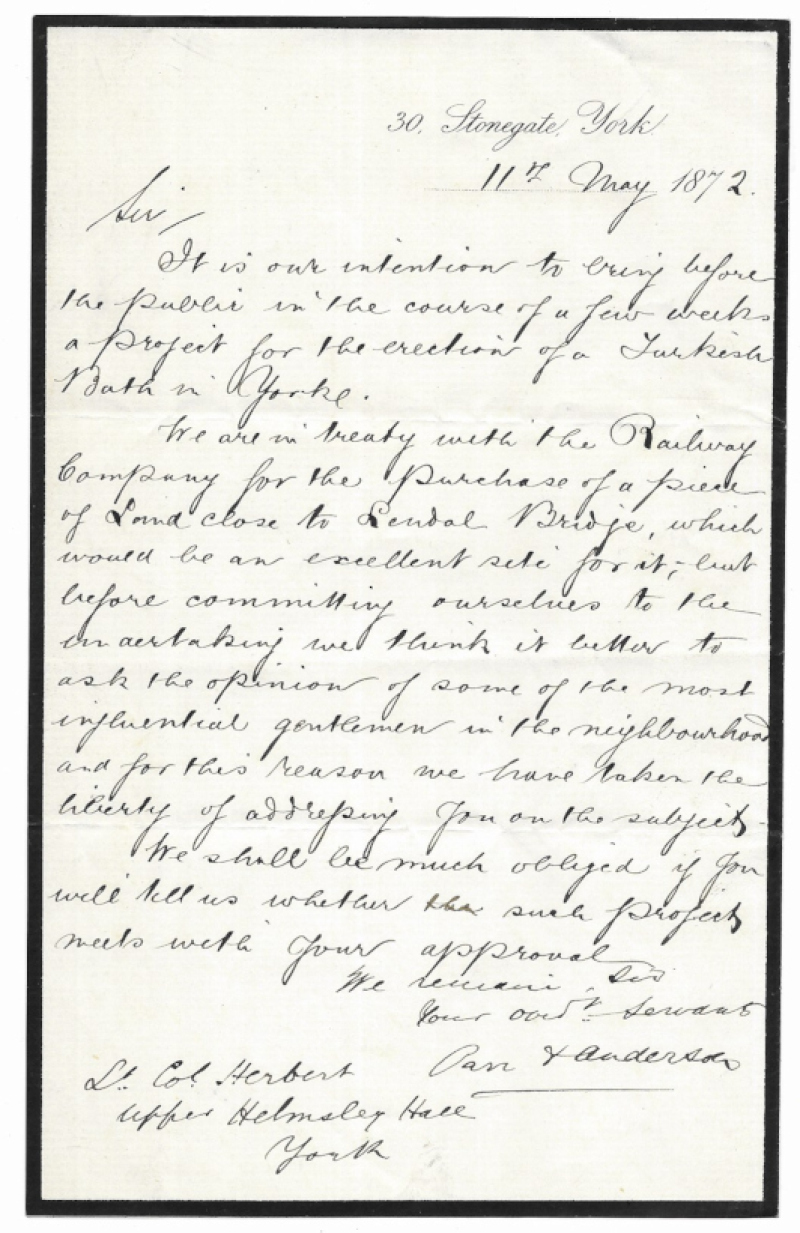 30, Stonegate, York.
11th May 1872.
Sir,
It is our intention to bring before
the public in the course of a few weeks
a project for the erection of a Turkish
Bath in Yorke.
We are in treaty with the Railway
Company for the purchase of a piece
of Land close to Lendal Bridge, which
would be an excellent site for it; but
before committing ourselves to the
undertaking we think it better to
ask the opinion of some of the most
influential gentlemen in the neighbourhood
and for this reason we have taken the
liberty of addressing you on the subject.
We shall be much obliged if you
will tell us whether such project
meets with your approval
We remain, Sir
Your obedt. Servants
& Anderson
Lt. Col. Herbert
Upper Helmsley Hall
York